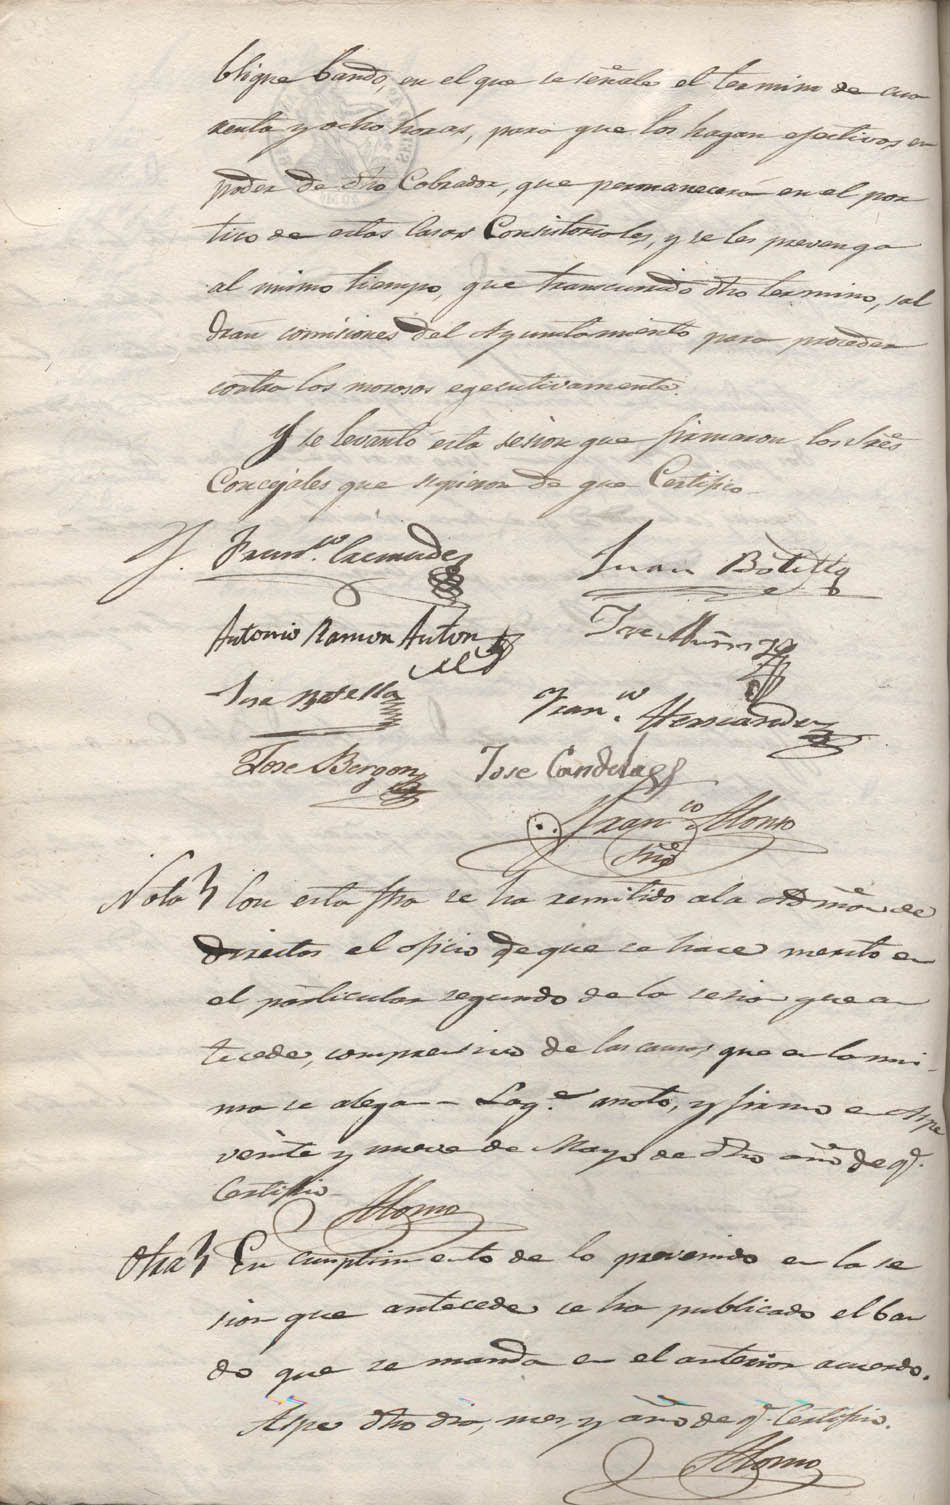 blique bando, en el que se señale el termino de cua
renta y ocho horas, para que los hagan efectivos en
poder de dho Cobrador, que permanecerá en el por
tico de estas Casas Consistoriales, y se les prevenga
al mismo tiempo, que transcurrido dho termino, sal
dran comisiones del Ayuntamiento para proceder
contra los morosos egecutivamente.
Y se levantó esta sesion que firmaron los Sres
Concejales que supieron de que Certifico
Franco. Cremades
Juan Botella
Antonio Ramon Anton
Jose Muñoz
Jose Botella
Franco. Hernandez
Jose Bergon
Jose Candela
Franco Alonso
Srio
Nota Con esta fha se ha remitido a la Admon de
directos el oficio de que se hace merito en
el particular segundo de la sesion que an
tecede, comprensivo de las causas que en la mis-
ma se alegan = La qe. anoto, y firmo en Aspe
veinte y nueve de Mayo de dho año de q.
Certifico
Alonso
Otra En cumplimiento de lo prevenido en la se
sion que antecede se ha publicado el ban
do que se manda en el anterior acuerdo.
Aspe dho dia, mes, y año de q. Certifico.
Alonso